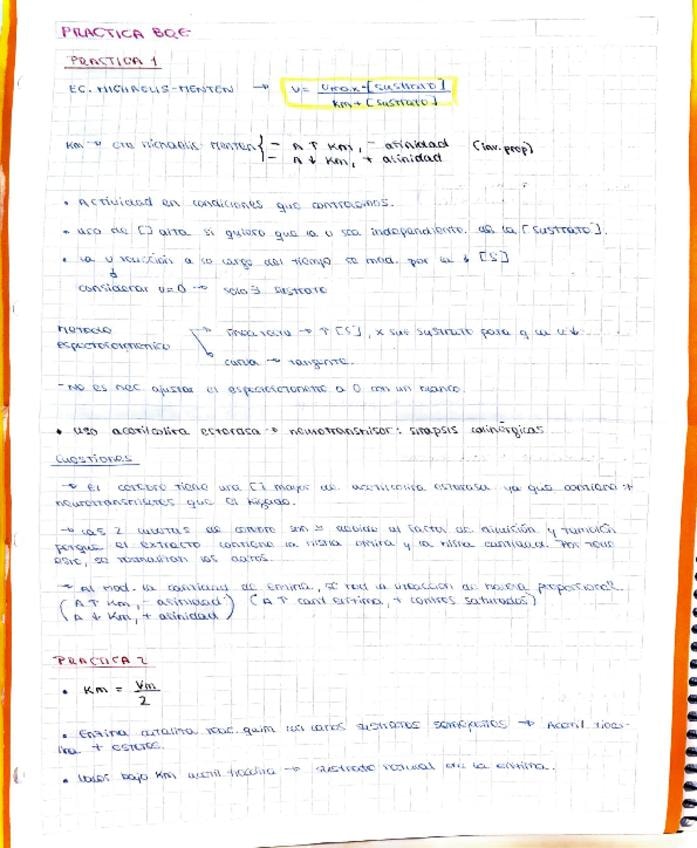 PRACTICA BQE
PRACTICA 1
EC. MICHAELIS-MENTEN → V = Vmax·[sustrato] / Km + [sustrato]
Km → cte Michaelis-Menten { - A ↑ Km, - afinidad (inv. prop)
- A ↓ Km, + afinidad
• Actividad en condiciones que controlamos.
• uso de [ ] alta si quiero que la v sea independiente de la [sustrato].
• La v reacción a lo largo del tiempo se mod. por la ↓ [S]
considerar v=0 → solo ∃ sustrato
Método
espectrofotométrico
línea recta → ↑ [S], x sustrato para q la v ↓
curva → tangente.
- No es nec. ajustar el espectrofotómetro a 0 con un blanco.
• uso acetilcolina esterasa → neurotransmisor: sinapsis colinérgicas
Cuestiones
→ El cerebro tiene una [ ] mayor de acetilcolina esterasa ya que contiene +
neurotransmisores que el hígado.
→ Las 2 de cerebro son debido al factor de dilución y también
porque el extracto contiene la misma enzima y la misma cantidad. Por
esto, se los datos.
→ Al mod. la cantidad de enzima, se mod la reacción de manera proporcional.
(A ↑ Km, - afinidad) (A ↑ cant enzima, + centros saturados)
(A ↓ Km, + afinidad)
PRACTICA 2
• Km = Vm / 2
• Enzima cataliza reac. quím con varios sustratos semejantes → Acetil
+ ésteres.
• Valor bajo Km acetil → sustrato normal de la enzima.